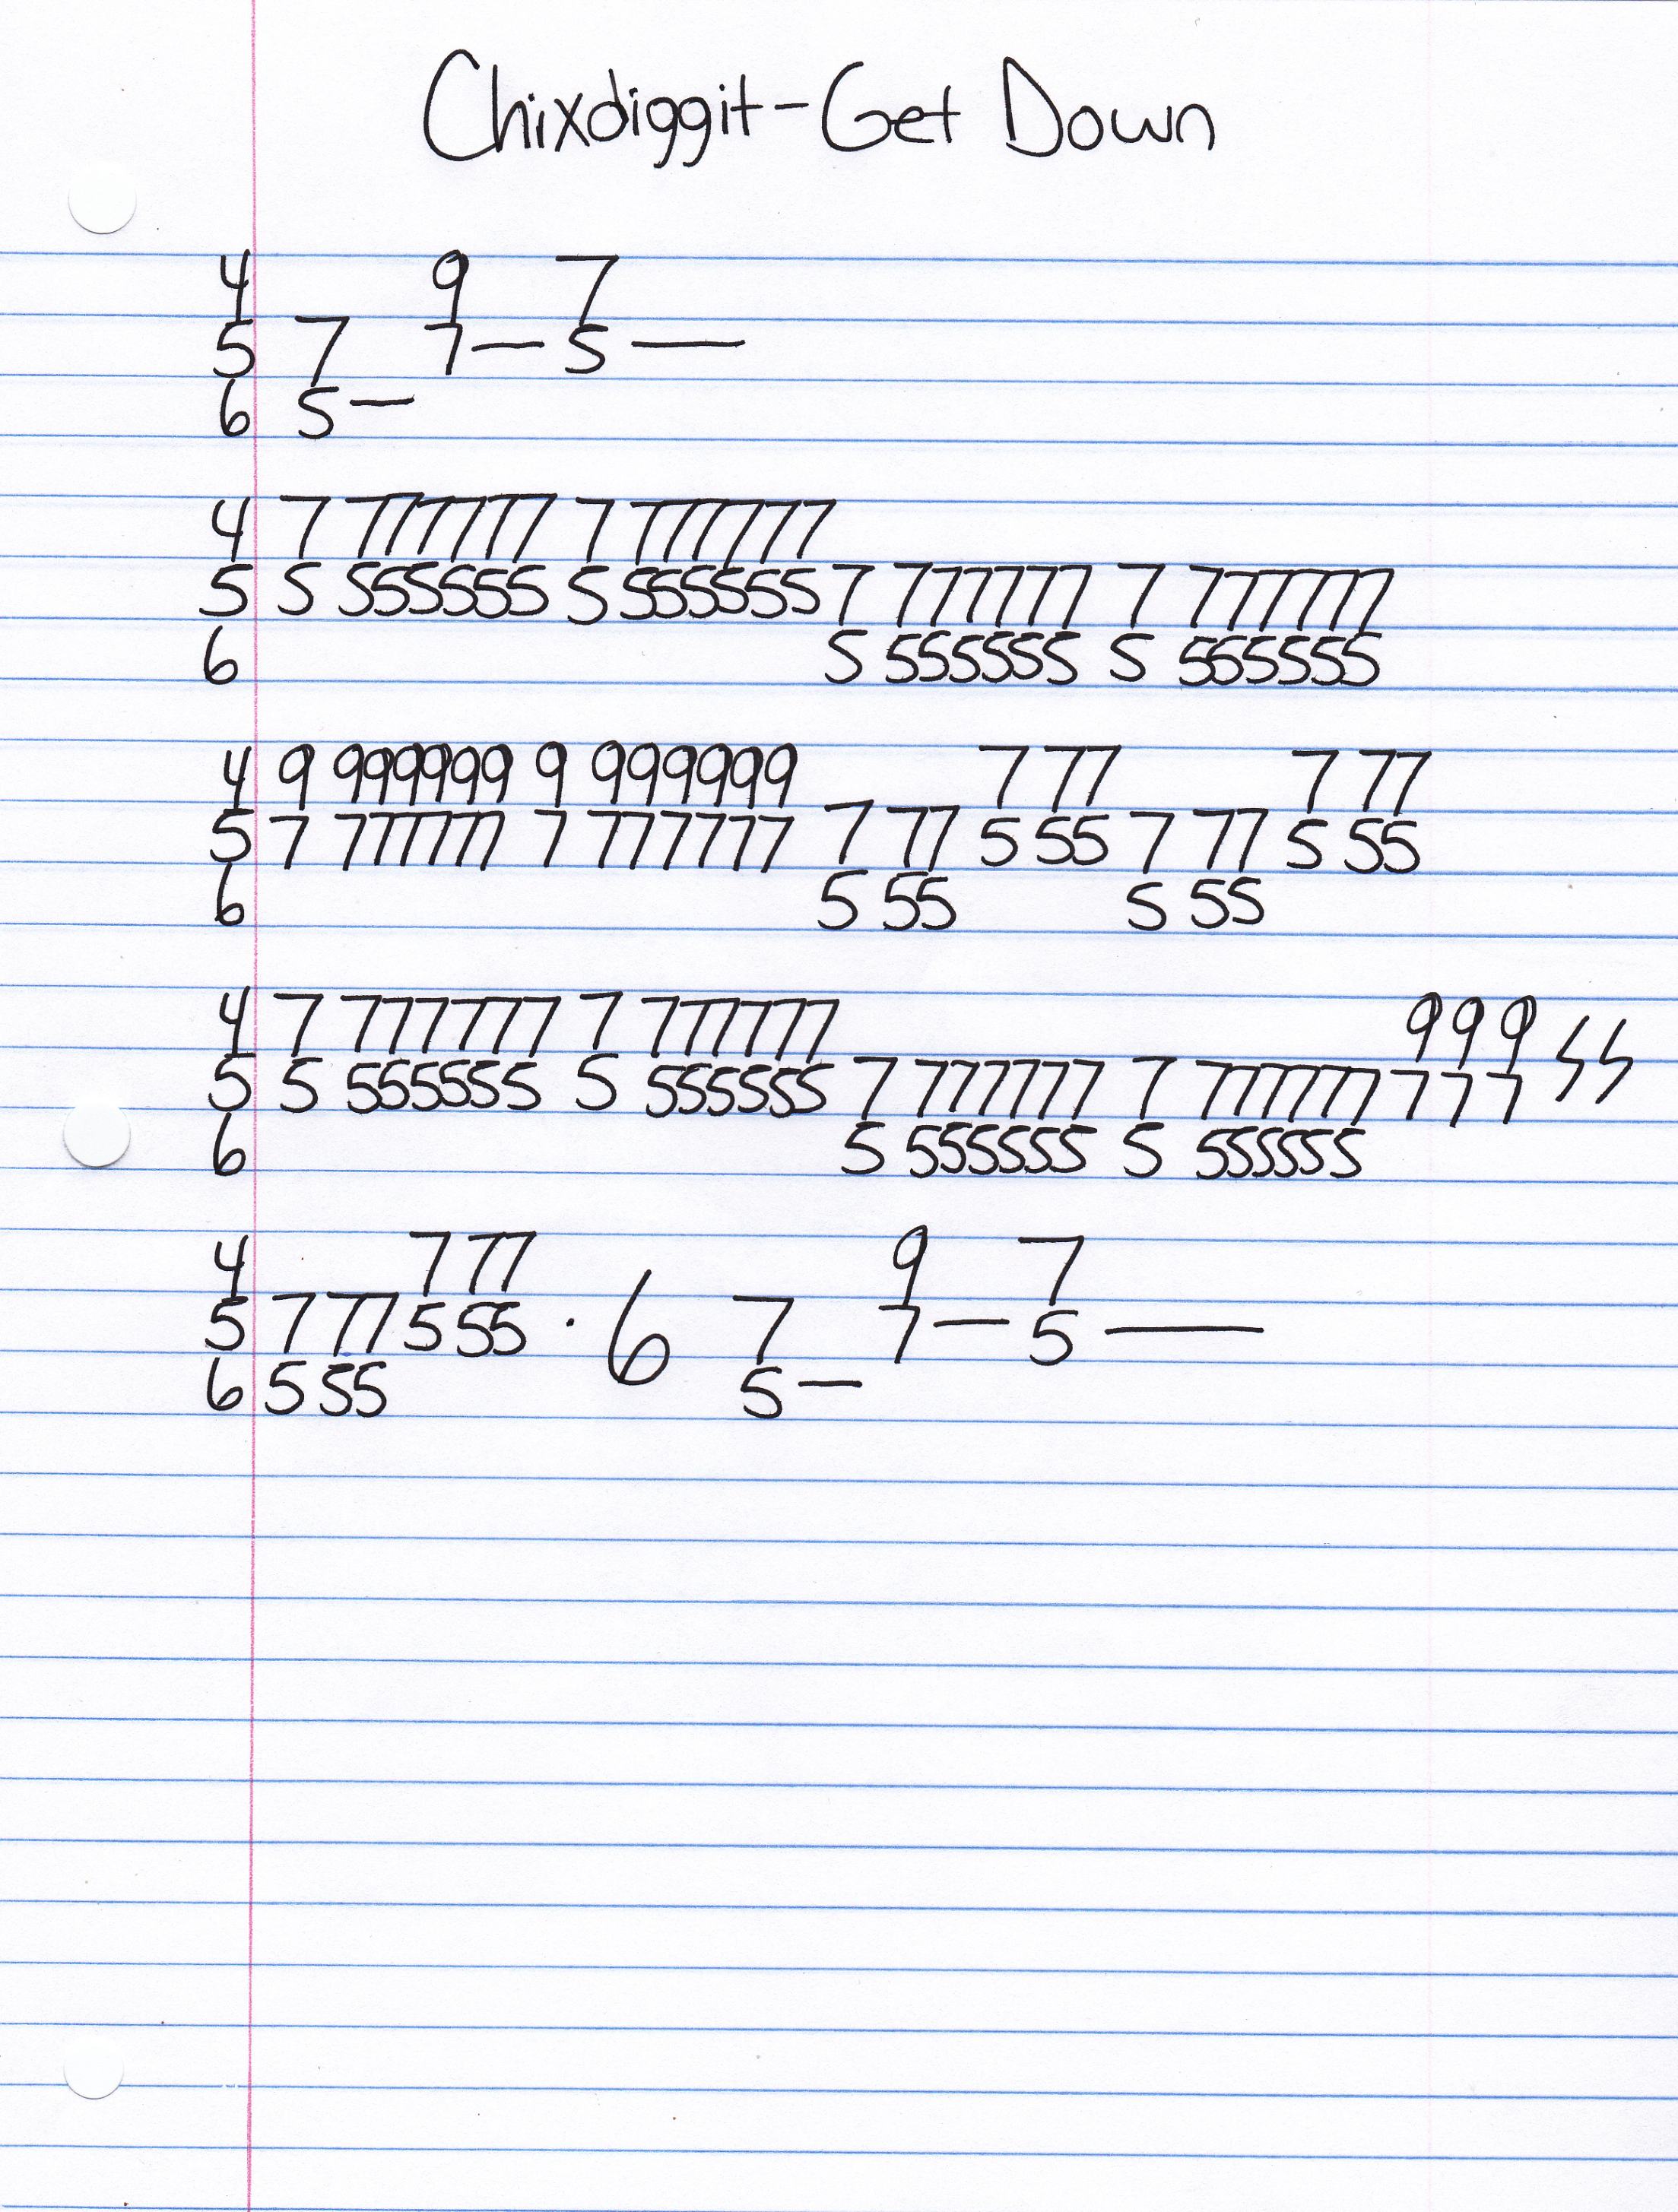 Chixdiggit-Get Down
4 9 7
5 7 7— 5 —
6 5—
4 7 777777 7 777777
5 5 555555 5 555555 7 777777 7 777777
6 5 555555 5 555555
4 9 999999 9 999999 7 77 7 77
5 7 777777 7 777777 7 77 5 55 7 77 5 55
6 5 55 5 55
4 7 777777 7 777777 9 9 9
5 5 555555 5 555555 7 777777 7 777777 7 7 7
6 5 555555 5 555555
4 7 77 9 7
5 7 77 5 55 · 6 7 7— 5 —
6 5 55 5—